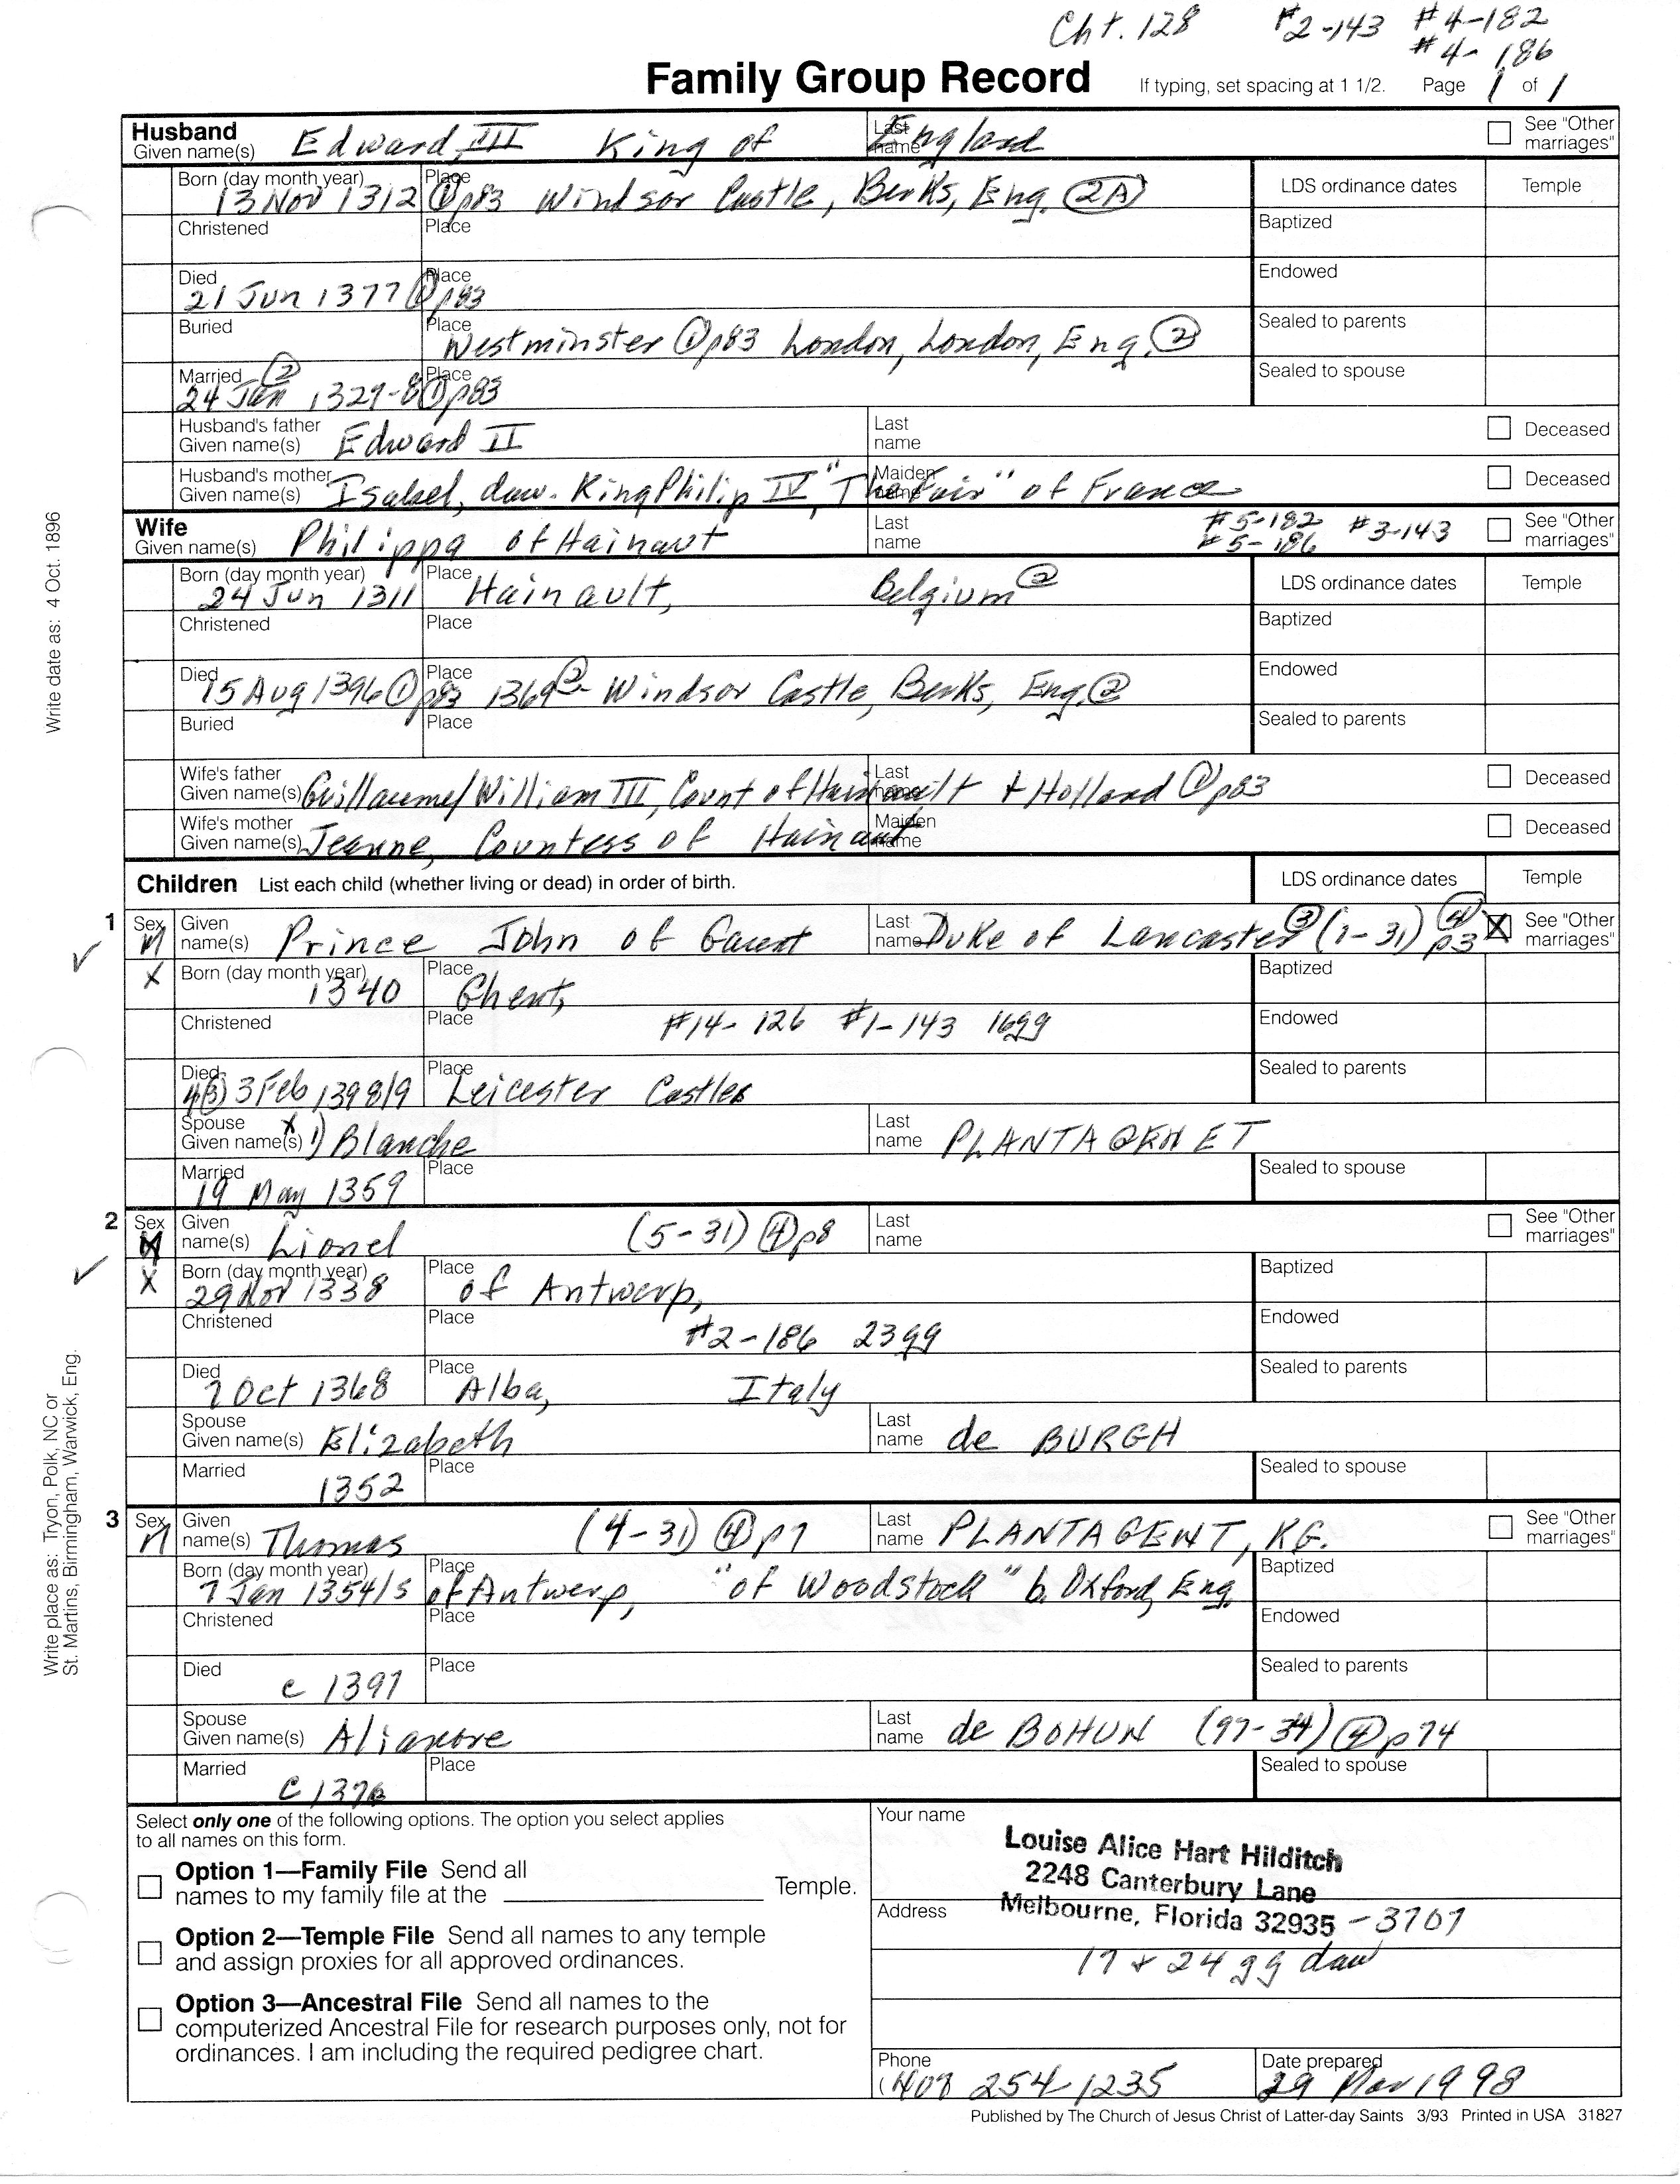 Cht. 128 #2-143 #4-182
#4-186
Family Group Record If typing, set spacing at 1 1/2. Page 1 of 1
Husband
Given name(s) Edward, III King of Last name England See "Other marriages"
Born (day month year) 13 Nov 1312 Place ① p83 Windsor Castle, Berks, Eng. 2A LDS ordinance dates Temple
Christened Place Baptized
Died 21 Jun 1377 Place ① p83 Endowed
Buried Place Westminster ① p83 London, London, Eng. ② Sealed to parents
Married ② 24 Jan 1329-8 Place ① p83 Sealed to spouse
Husband's father
Given name(s) Edward II Last name Deceased
Husband's mother
Given name(s) Isabel, daw. King Philip IV, "The Fair" of France Maiden name Deceased
Wife
Given name(s) Philippa of Hainaut Last name #5-182 #3-143 See "Other marriages"
#5-186
Born (day month year) 24 Jun 1311 Place Hainault, Belgium ② LDS ordinance dates Temple
Christened Place Baptized
Died 15 Aug 1396 ① p83 Place 1369 ② Windsor Castle, Berks, Eng. ② Endowed
Buried Place Sealed to parents
Wife's father
Given name(s) Guillaume/William III, Count of Hainault & Holland ① p83 Last name Deceased
Wife's mother
Given name(s) Jeanne, Countess of Hainaut Maiden name Deceased
Children List each child (whether living or dead) in order of birth. LDS ordinance dates Temple
1 Sex M Given name(s) Prince John of Gaunt Last name Duke of Lancaster ③ (1-31) ④ p3 X See "Other marriages"
X Born (day month year) 1340 Place Ghent, Baptized
Christened Place #14-126 #1-143 16gg Endowed
Died 3 Feb 1398/9 Place Leicester Castle Sealed to parents
Spouse
Given name(s) X 1) Blanche Last name PLANTAGENET
Married 19 May 1359 Place Sealed to spouse
2 Sex M Given name(s) Lionel (5-31) ④ p8 Last name See "Other marriages"
X Born (day month year) 29 Nov 1338 Place of Antwerp, Baptized
Christened Place #2-186 23gg Endowed
Died 7 Oct 1368 Place Alba, Italy Sealed to parents
Spouse
Given name(s) Elizabeth Last name de BURGH
Married 1352 Place Sealed to spouse
3 Sex M Given name(s) Thomas (4-31) ④ p7 Last name PLANTAGENT, KG. See "Other marriages"
Born (day month year) 7 Jan 1354/5 Place of Antwerp, "of Woodstock" b. Oxford, Eng. Baptized
Christened Place Endowed
Died c 1397 Place Sealed to parents
Spouse
Given name(s) Alianore Last name de BOHUN (97-34) ④ p74
Married Place Sealed to spouse
Select only one of the following options. The option you select applies
to all names on this form.
Option 1—Family File Send all
names to my family file at the Temple.
Option 2—Temple File Send all names to any temple
and assign proxies for all approved ordinances.
Option 3—Ancestral File Send all names to the
computerized Ancestral File for research purposes only, not for
ordinances. I am including the required pedigree chart.
Your name
Louise Alice Hart Hilditch
2248 Canterbury Lane
Address Melbourne, Florida 32935 -3707
17 & 24 gg daw
Phone (407 254 1235 Date prepared 29 Mar 1998
Published by The Church of Jesus Christ of Latter-day Saints 3/93 Printed in USA 31827
Write date as: 4 Oct. 1896
Write place as: Tryon, Polk, NC or
St. Martins, Birmingham, Warwick, Eng.